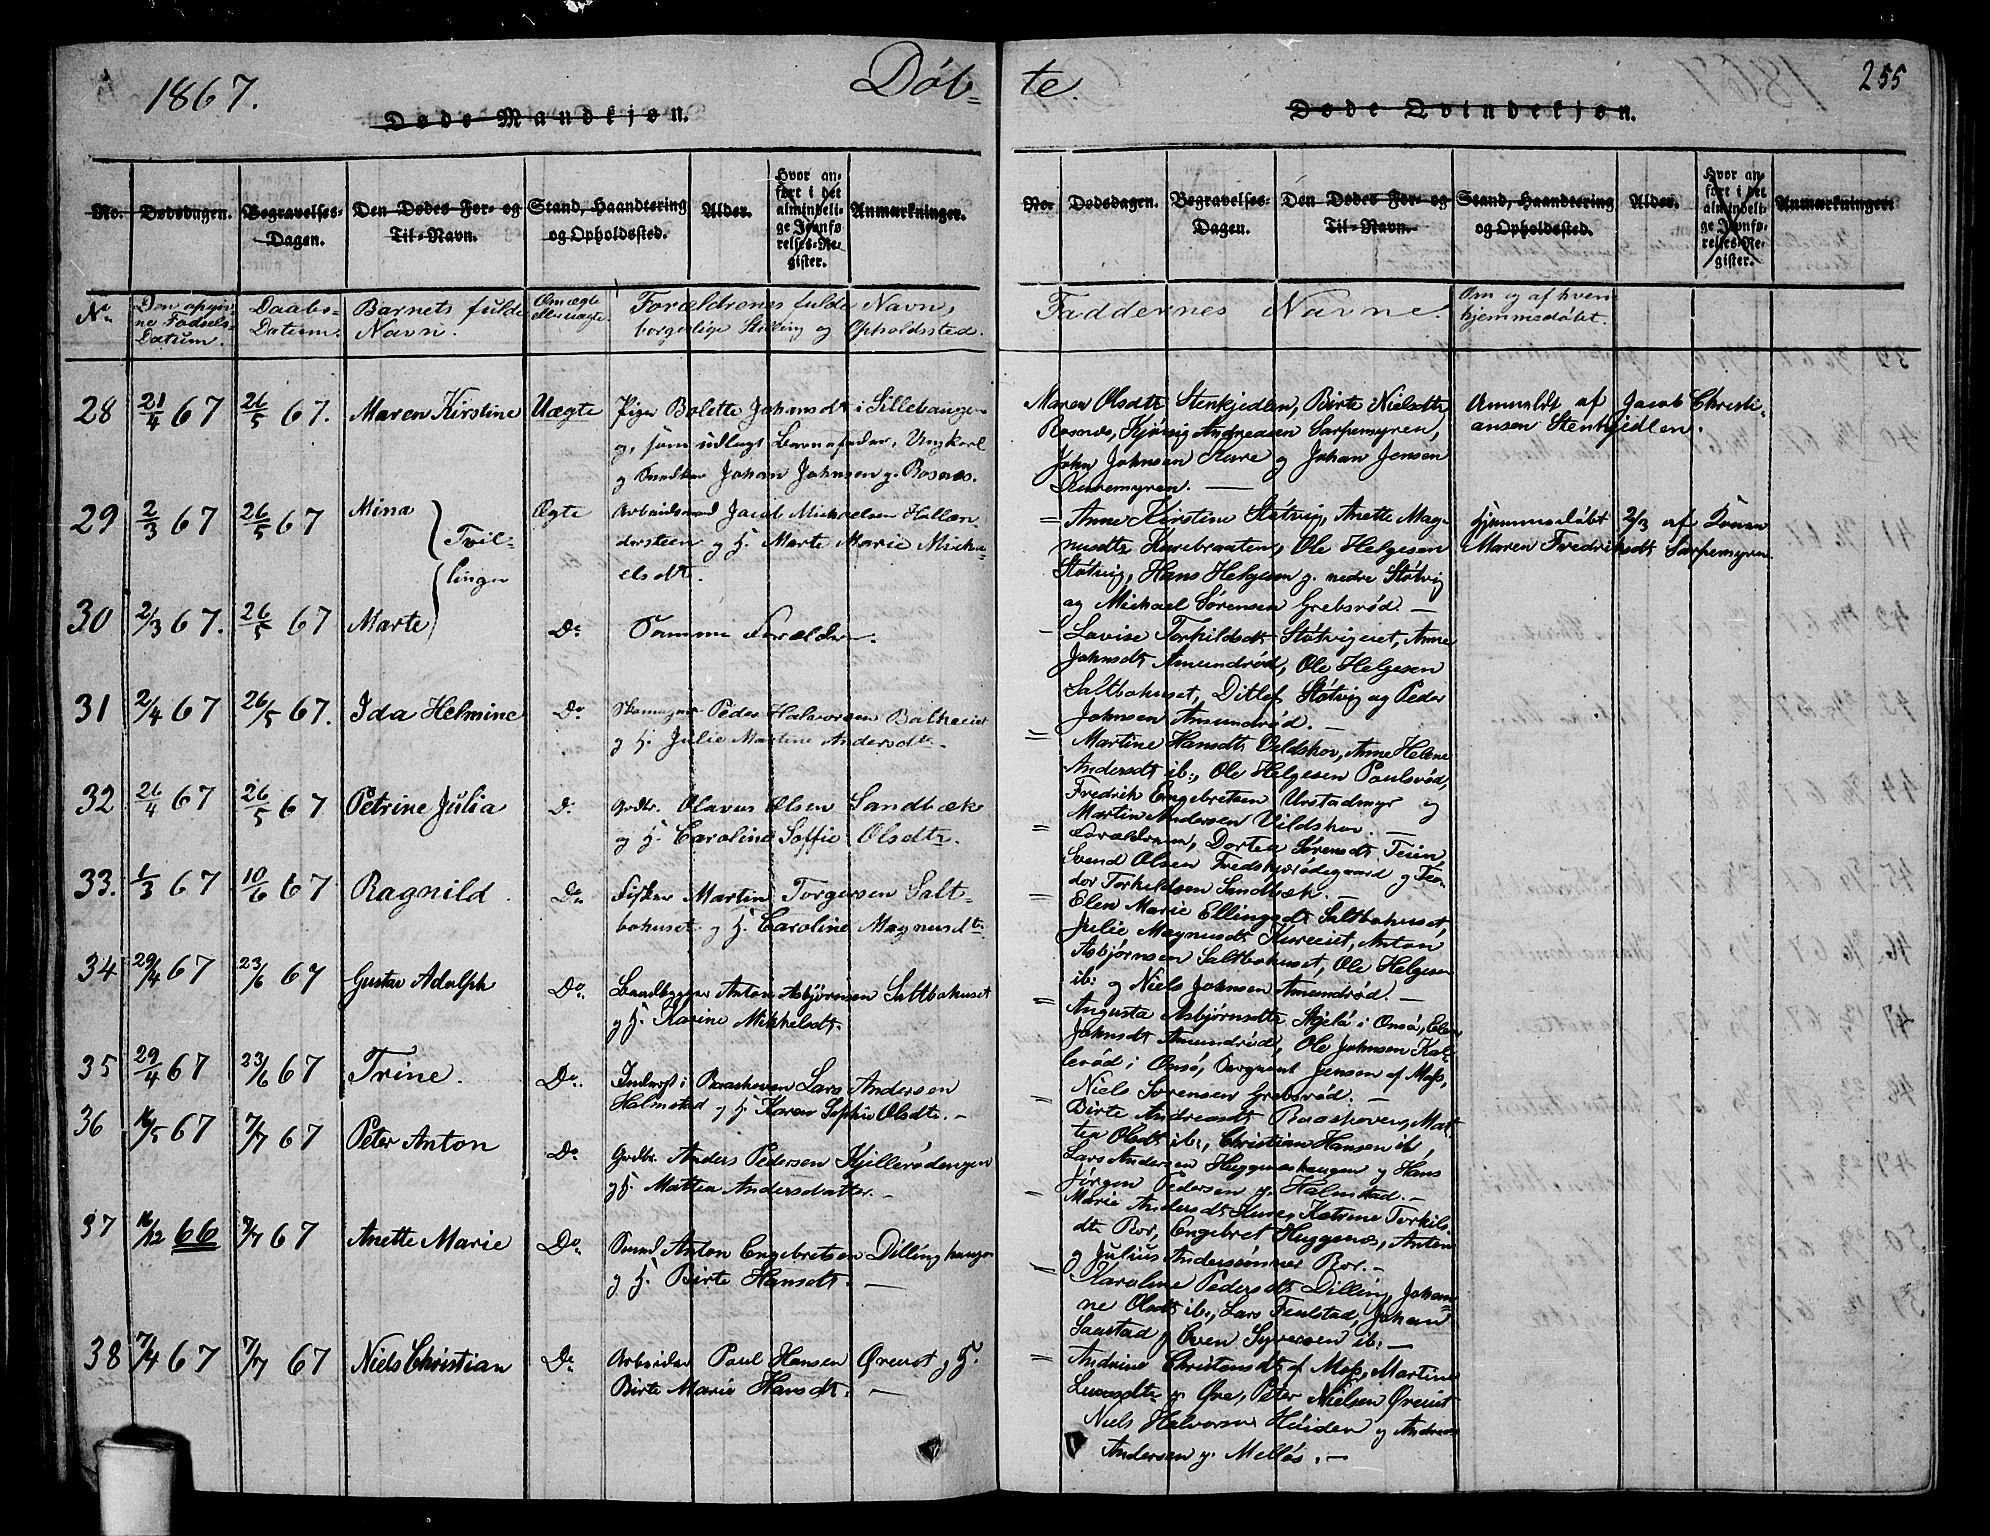 1867. Døb- te. 255
Døde Mandkjøn. Døde Qvindekjøn.
No. Dødsdagen. Begravelses-Dagen. Den Dødes For- og Til-Navn. Stand, Haandtering og Opholdssted. Alder. Hvor anført i det almindelige Jevnførelses-Register. Anmærkninger.
No. Dødsdagen. Begravelses-Dagen. Den Dødes For- og Til-Navn. Stand, Haandtering og Opholdssted. Alder. Hvor anført i det almindelige Jevnførelses-Register. Anmærkninger.
No. Den opgivne Fødsels-Datum. Daabs-Datum. Barnets fulde Navn. Om ægte eller uægte. Forældrenes fulde Navn, borgerlige Stilling og Opholdssted.
Faddernes Navne. Om og af hvem hjemmedøbt.
28 21/4 67 26/5 67. Maren Kirstine Uægte Pige Bolette Johansdt i Sillebaugen
og, som udlagt Barnefader, Ungkarl
og Johan Johnsen g. Rosnæs.
29 2/3 67 26/5 67 Mina Tvil- Ægte Arbeidsmand Jacob Michaelsen Hallen
dersteen og H. Marte Marie Micha-
elsdt.
linger
30 2/3 67. 26/5 67 Marte Do Samme Forældre.
31 2/4 67 26/5 67. Ida Helmine Do Skomager Peder Halvorsen
og H. Julie Martine Andersdtr.
32 26/4 67 26/5 67 Petrine Julia Do Grdbr. Olavus Olsen Sandbæk
og H. Caroline Soffie Olsdtr.
33. 1/3 67 10/6 67 Ragnild Do Fisker Martin Torgersen Salt-
bohuset og H. Caroline Magnusdtr.
34 29/4 67 23/6 67 Gustav Adolph Do Baadbygger Anton Asbjørnsen Saltbohuset
og H. Karine Mikkelsdt.
35 29/4 67 23/6 67 Trine. Do. Inderst i Raashoven Lars Andersen
Halmstad og H. Karen Sophie Olsdtr. —
36 16/5 67 7/7 67 Peter Anton Do Grdbr. Anders Pedersen Kjellerødengen
og H. Mathea Andersdatter. —
37 16/12 66 7/7 67 Anette Marie Do Svend Anton Engebretsen Dillinghaugen
og H. Birte Hansdt. —
38 7/4 67 7/7 67 Niels Christian Do Arbeider Paul Hansen Øreiet og H.
Birte Marie Hansdt. —
Maren Olsdtr Stenkjedlen, Birte Nielsdtr Anmeldt af Jacob Christi-
Rosnæs, Andreasen Sarpemyren, ansen Stenkjedlen.
John Johnsen Kure og Johan Jensen
Kuremyren. —
= Anne Kirstine Støtvig, Anette Mag- Hjemmedøbt 2/3 af Konen
nusdtr Kurebraaten, Ole Helgesen Maren Fredriksdt Sarpemyren
Støtvig, Hans Helgesen g. nedre Støtvig
og Michael Sørensen Grebsrød. —
- Lovise Torkildsdt Støtvigeiet, Anne
Johnsdt Amundrød, Ole Helgesen
Saltbohuset, Ditlef Støtvig og Peder
Johnsen Amundrød. —
= Martine Hansdt Vildskov, Anne Helene
Andersdt ib:, Ole Helgesen Paulsrød,
Fredrik Engebretsen Urstadmyr og
Martin Andersen Vildskov. —
= Forældrene, Dortea Sørensdt Teien,
Svend Olsen Fredskjærødegaard og Teo-
dor Torkildsen Sandbæk. —
= Elen Marie Ellingsdt Saltbohuset,
Julie Magnusdt Kureeiet, Anton
Asbjørnsen Saltbohuset, Ole Helgesen
ib: og Niels Johnsen Amundrød. —
= Augusta Asbjørnsdtr i Onsø, Elen
Johnsdt Amundrød, Ole Johnsen Kol-
lerød i Onsø, Sergeant Jensen af Moss,
Niels Sørensen Grebsrød. —
= Birte Andreasdt Raashoven, Mat-
tea Olsdt ib:, Christian Hansen ib,
Lars Andersen Huggenæshaugen og Hans
Jørgen Pedersen g. Halmstad. —
- Marie Andersdt Kure, Katrine Torkils-
dt Ror, Engebret Huggenæs, Anton
og Julius Anderssønner Ror. —
= Karoline Pedersdt Dilling, Johan-
ne Olsdt ib:, Lars Fuglstad, Johan
Saastad og Even Syversen ib: —
= Andrine Christensdt af Moss, Martine
g. Øre, Peter Nielsen Øreiet
Niels Halvorsen Heiden og Andreas
Andersen g. Melløs. —